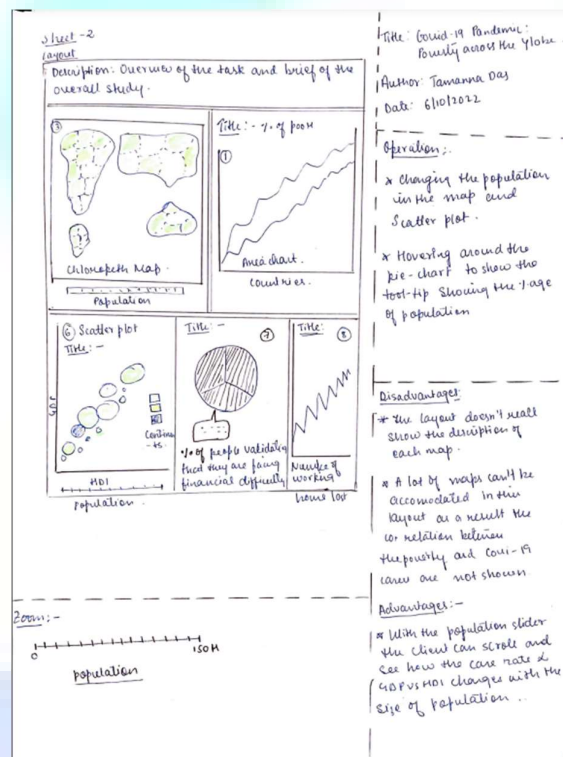 Sheet -2
Layout
Description: Overview of the task and brief of the
overall study.
③
Chloropeth Map.
Population
Title: - % of poor
①
Area chart.
Countries.
⑥ Scatter plot
Title: -
GDP
HDI
Population.
Contine
-ts.
Title: -
⑦
% of people validating
that they are facing
financial difficulty
Title:
⑧
Number of
working
hours lost
Zoom:-
0
150M
population
Title: Covid-19 Pandemic:
Poverty across the Globe.
Author: Tamanna Das
Date: 6/10/2022
Operation:-
* Changing the population
in the map and
Scatter plot.
* Hovering around the
pie-chart to show the
tool-tip Showing the %age
of population
Disadvantages
* The layout doesn't reall
show the description of
each map.
* A lot of maps can't be
accomodated in this
layout as a result the
co relation between
the poverty and Covi-19
cases are not shown.
Advantages:-
* With the population slider
the client can scrole and
see how the case rate &
GDP vs HDI changes with the
size of population ..